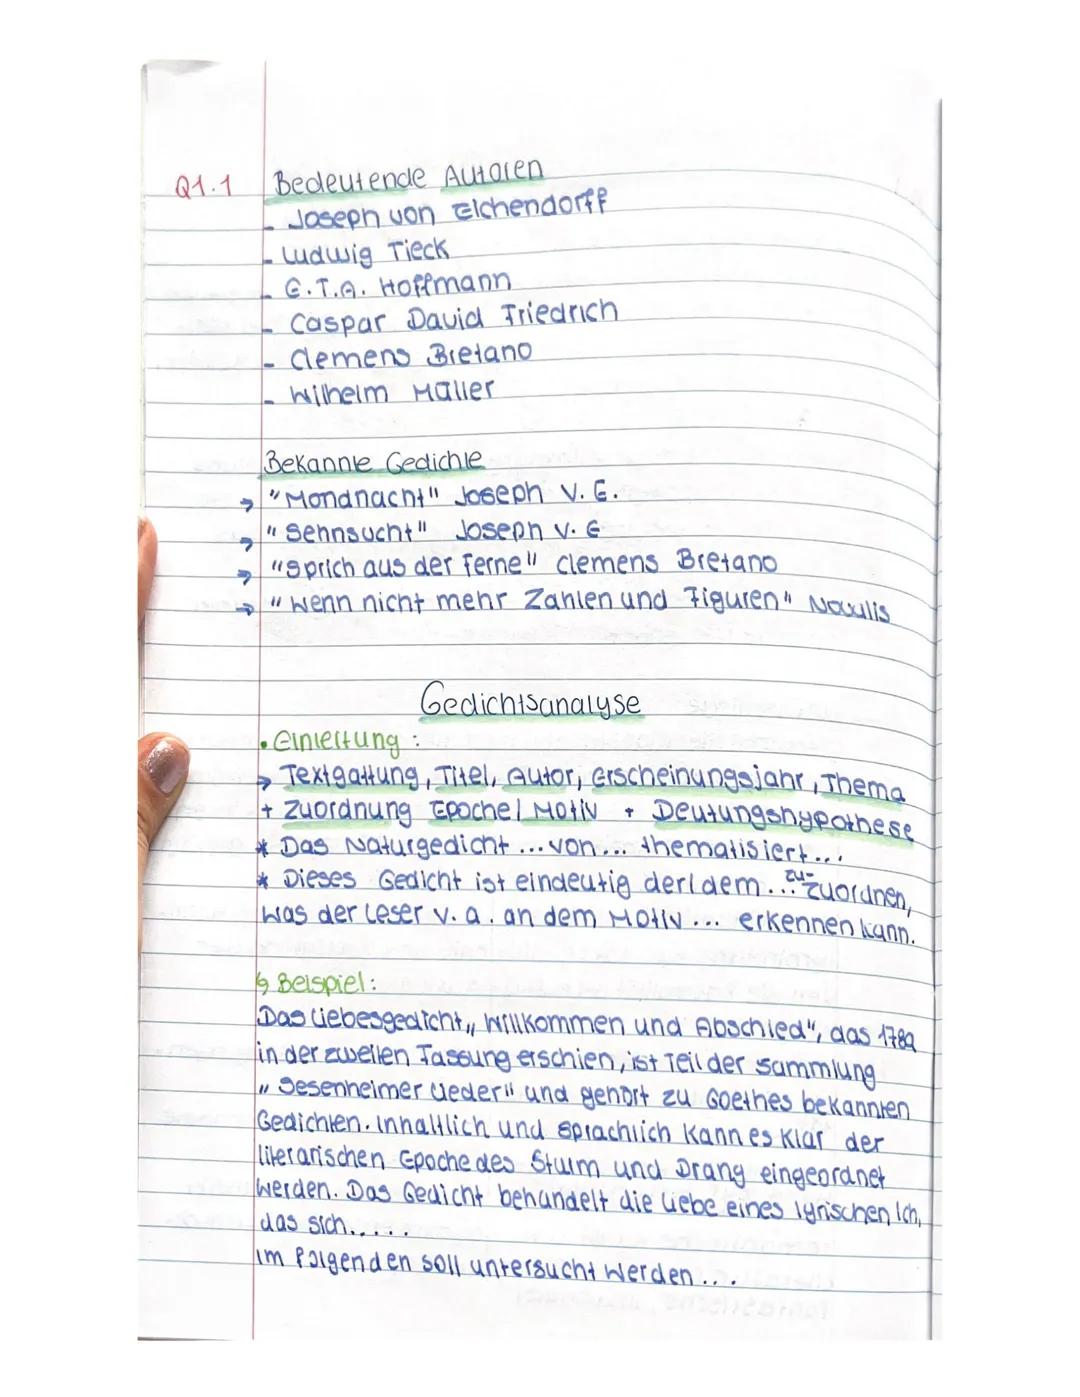 Q1.1 Bedeutende Autoren
- Joseph von Eichendorff
- Ludwig Tieck
- E.T.A. Hoffmann
- Caspar David Friedrich
- Clemens Bretano
- Wilhelm Müller
Bekannte Gedichte
→ "Mondnacht" Joseph v. E.
→ "Sennsucht" Joseph v. E
→ "Sprich aus der Ferne" Clemens Bretano
→ "Wenn nicht mehr Zahlen und Figuren" Novalis
Gedichtsanalyse
• Einleitung :
→ Textgattung, Titel, Autor, Erscheinungsjahr, Thema
+ Zuordnung Epoche/ Motiv + Deutungshypothese
* Das Naturgedicht ... von ... thematisiert...
* Dieses Gedicht ist eindeutig der/dem ... zu- zuordnen,
was der Leser v. a. an dem Motiv ... erkennen kann.
↳ Beispiel:
Das Liebesgedicht „Willkommen und Abschied", das 1789
in der zweiten Fassung erschien, ist Teil der Sammlung
„Sesenheimer Lieder" und gehört zu Goethes bekannten
Gedichten. Inhaltlich und sprachlich kann es klar der
literarischen Epoche des Sturm und Drang eingeordnet
werden. Das Gedicht behandelt die Liebe eines lyrischen Ich,
das sich......
Im Folgenden soll untersucht werden ...